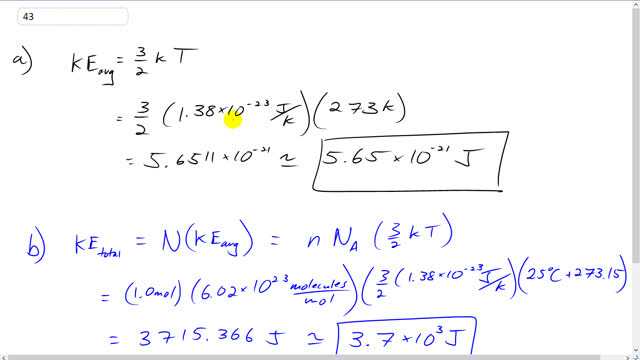 43
a) KE_avg = 3/2 k T
= 3/2 (1.38 × 10^-23 J/K)(273 K)
= 5.6511 × 10^-21 ≃ 5.65 × 10^-21 J
b) KE_total = N(KE_avg) = n N_A (3/2 k T)
= (1.0 mol)(6.02 × 10^23 molecules/mol)(3/2 (1.38 × 10^-23 J/K)(25°C + 273.15)
= 3715.366 J ≃ 3.7 × 10^3 J